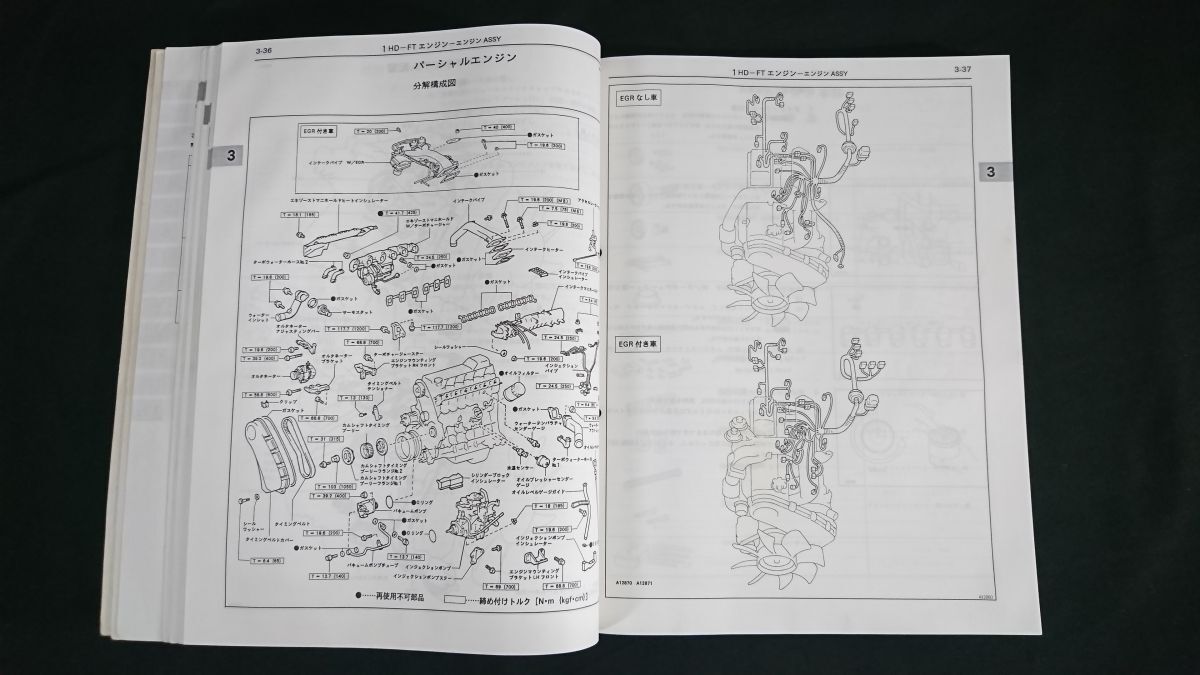 3-36
1HD-FT エンジン-エンジン ASSY
パーシャルエンジン
分解構成図
3
EGR 付き車
T=20 {200}
T=40 {400}
●ガスケット
T=19.6 {200}
インテークパイプ W/EGR
●ガスケット
エキゾーストマニホールドヒートインシュレーター
インテークパイプ
T=19.6 {200} (M8)
T=7.5 {75} (M6)
T=19.6 {200}
●T=41.7 {425}
エキゾーストマニホールド
W/ターボチャージャー
T=24.5 {250}
ターボウォーターホースNo.2
●ガスケット
●ガスケット
インテークヒーター
インテークパイプ
インシュレーター
T=19.6 {200}
●ガスケット
●ガスケット
ウォーター
インレット
サーモスタット
●ガスケット
オルタネーター
アジャスティングバー
T=117.7 {1200}
T=117.7 {1200}
T=24.5 {250}
T=68.6 {700}
シールワッシャー
T=19.6 {200}
T=39.2 {400}
オルタネーター
ブラケット
エンジンマウンティング
ブラケットRH フロント
T=19.6 {200}
インジェクション
パイプ
オルタネーター
タイミングベルト
テンショナー
●オイルフィルター
T=24.5 {250}
クリップ
T=13 {130}
●ガスケット
ガスケット
T=68.6 {700}
カムシャフトタイミング
プーリー
T=31 {315}
カムシャフトタイミング
プーリーフランジNo.2
カムシャフトタイミング
プーリーフランジNo.1
水温センサー
ターボウォーターホース
No.1
シリンダーブロック
インシュレーター
オイルプレッシャーセンダー
ゲージ
オイルレベルゲージガイド
T=39.2 {400}
●Oリング
バキュームポンプ
●ガスケット
T=18 {185}
シール
ワッシャー
タイミングベルト
タイミングベルトカバー
T=19.6 {200}
●Oリング
T=19.6 {200}
インジェクションポンプ
インシュレーター
●ガスケット
T=13.7 {140}
バキュームポンプチューブ
インジェクションポンプ
インジェクションポンプステー
エンジンマウンティング
ブラケットLH フロント
T=13.7 {140}
T=69 {700}
T=68.6 {700}
●……再使用不可部品
……締め付けトルク [N・m {kgf・cm}]
1HD-FT エンジン-エンジン ASSY
3-37
EGR なし車
3
EGR 付き車
A12870 A12871